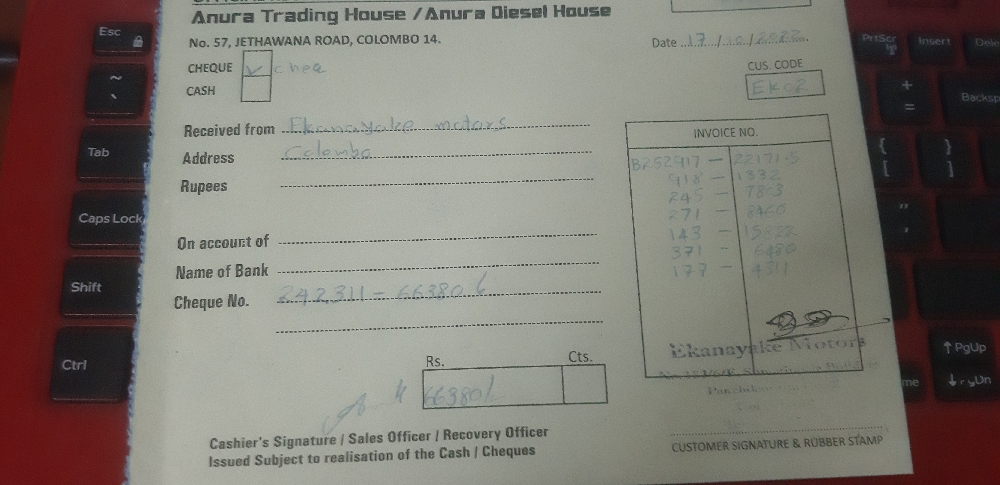 Anura Trading House / Anura Diesel House
No. 57, JETHAWANA ROAD, COLOMBO 14.
Date 17/10/2022
CHEQUE cheq
CASH
CUS. CODE
EK02
Received from Ekanayake motors
Address Colombo
Rupees
On account of
Name of Bank
Cheque No. 242311 - 66380/
INVOICE NO.
B252917 - 22171.5
918 - 1332
245 - 7803
271 - 8460
143 - 15822
371 - 6480
177 - 4311
Rs. Cts.
66380/
Ekanayake Motors
Cashier's Signature / Sales Officer / Recovery Officer
Issued Subject to realisation of the Cash / Cheques
CUSTOMER SIGNATURE & RUBBER STAMP
Esc
~
`
Tab
Caps Lock
Shift
Ctrl
PrtScr
Insert
+
=
{
[
}
]
"
,
PgUp